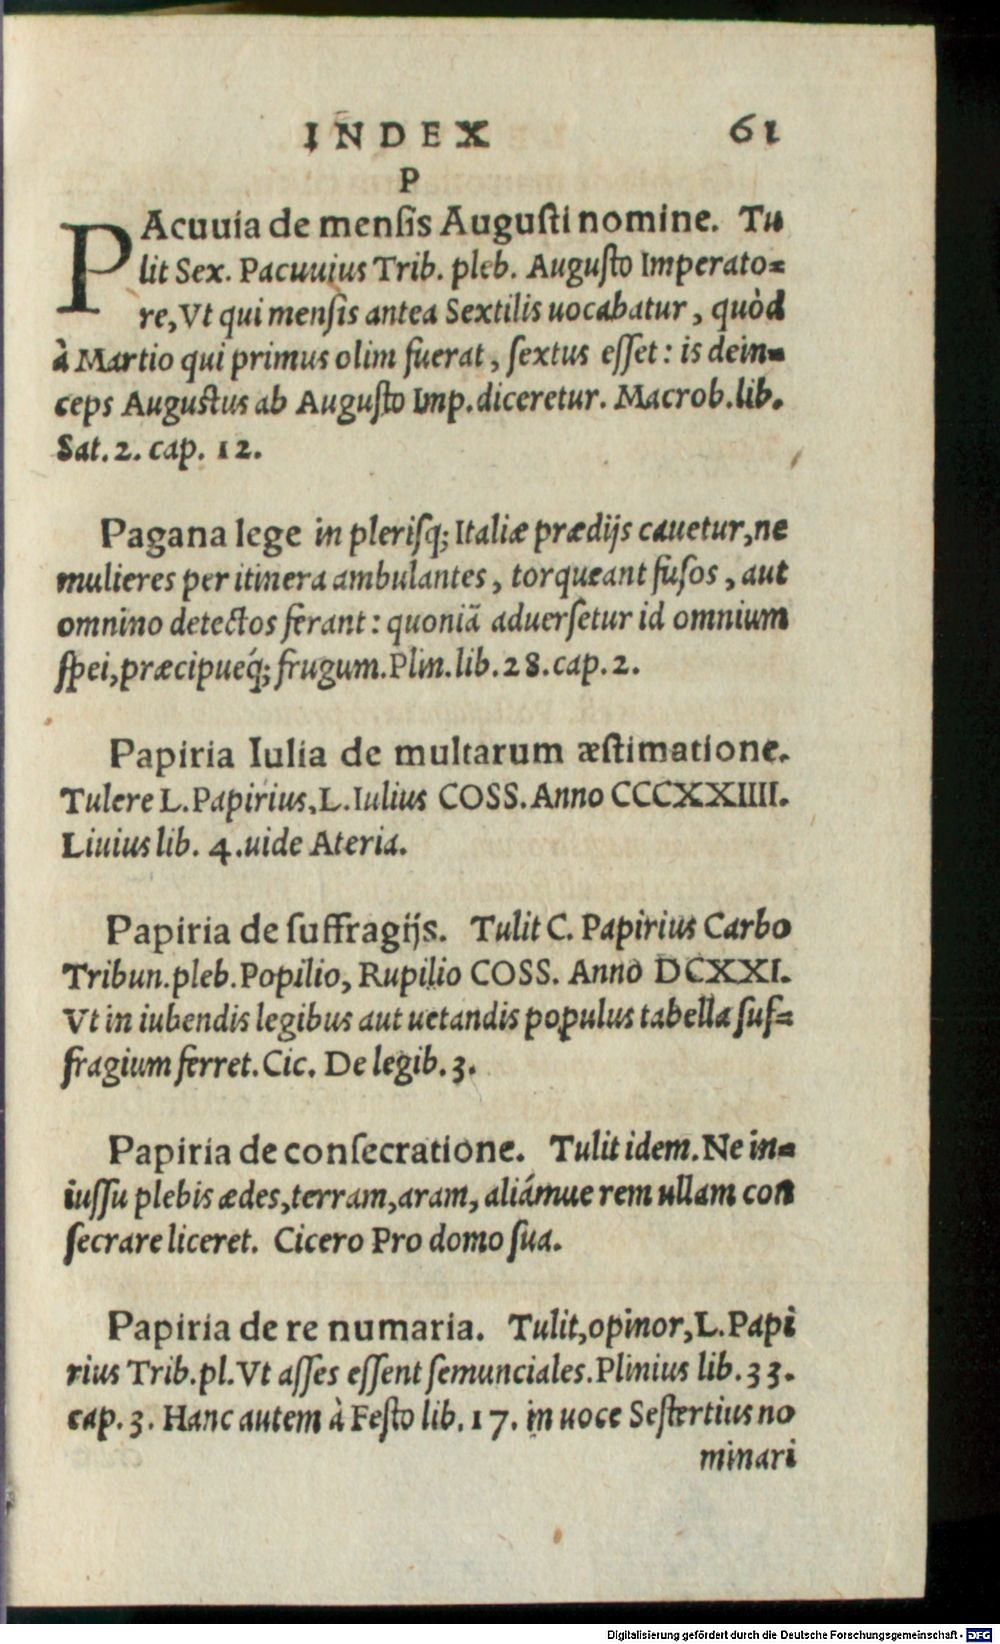 INDEX 61
P
PAcuuia de menſis Auguſti nomine. Tu
lit Sex. Pacuuius Trib. pleb. Auguſto Imperato=
re, Vt qui menſis antea Sextilis uocabatur, quòd
à Martio qui primus olim fuerat, ſextus eſſet: is dein=
ceps Auguſtus ab Auguſto Imp. diceretur. Macrob. lib.
Sat. 2. cap. 12.
Pagana lege in pleriſq; Italiæ prædijs cauetur, ne
mulieres per itinera ambulantes, torqueant fuſos, aut
omnino detectos ferant: quoniã aduerſetur id omnium
ſpei, præcipueq́; frugum. Plin. lib. 28. cap. 2.
Papiria Iulia de multarum æſtimatione.
Tulere L. Papirius, L. Iulius COSS. Anno CCCXXIIII.
Liuius lib. 4. uide Ateria.
Papiria de ſuffragijs. Tulit C. Papirius Carbo
Tribun. pleb. Popilio, Rupilio COSS. Anno DCXXI.
Vt in iubendis legibus aut uetandis populus tabella ſuf=
fragium ferret. Cic. De legib. 3.
Papiria de conſecratione. Tulit idem. Ne in=
iuſſu plebis ædes, terram, aram, aliámue rem ullam con
ſecrare liceret. Cicero Pro domo ſua.
Papiria de re numaria. Tulit, opinor, L. Papi
rius Trib. pl. Vt aſſes eſſent ſemunciales. Plinius lib. 33.
cap. 3. Hanc autem à Feſto lib. 17. in uoce Seſtertius no
minari
Digitalisierung gefördert durch die Deutsche Forschungsgemeinschaft - DFG